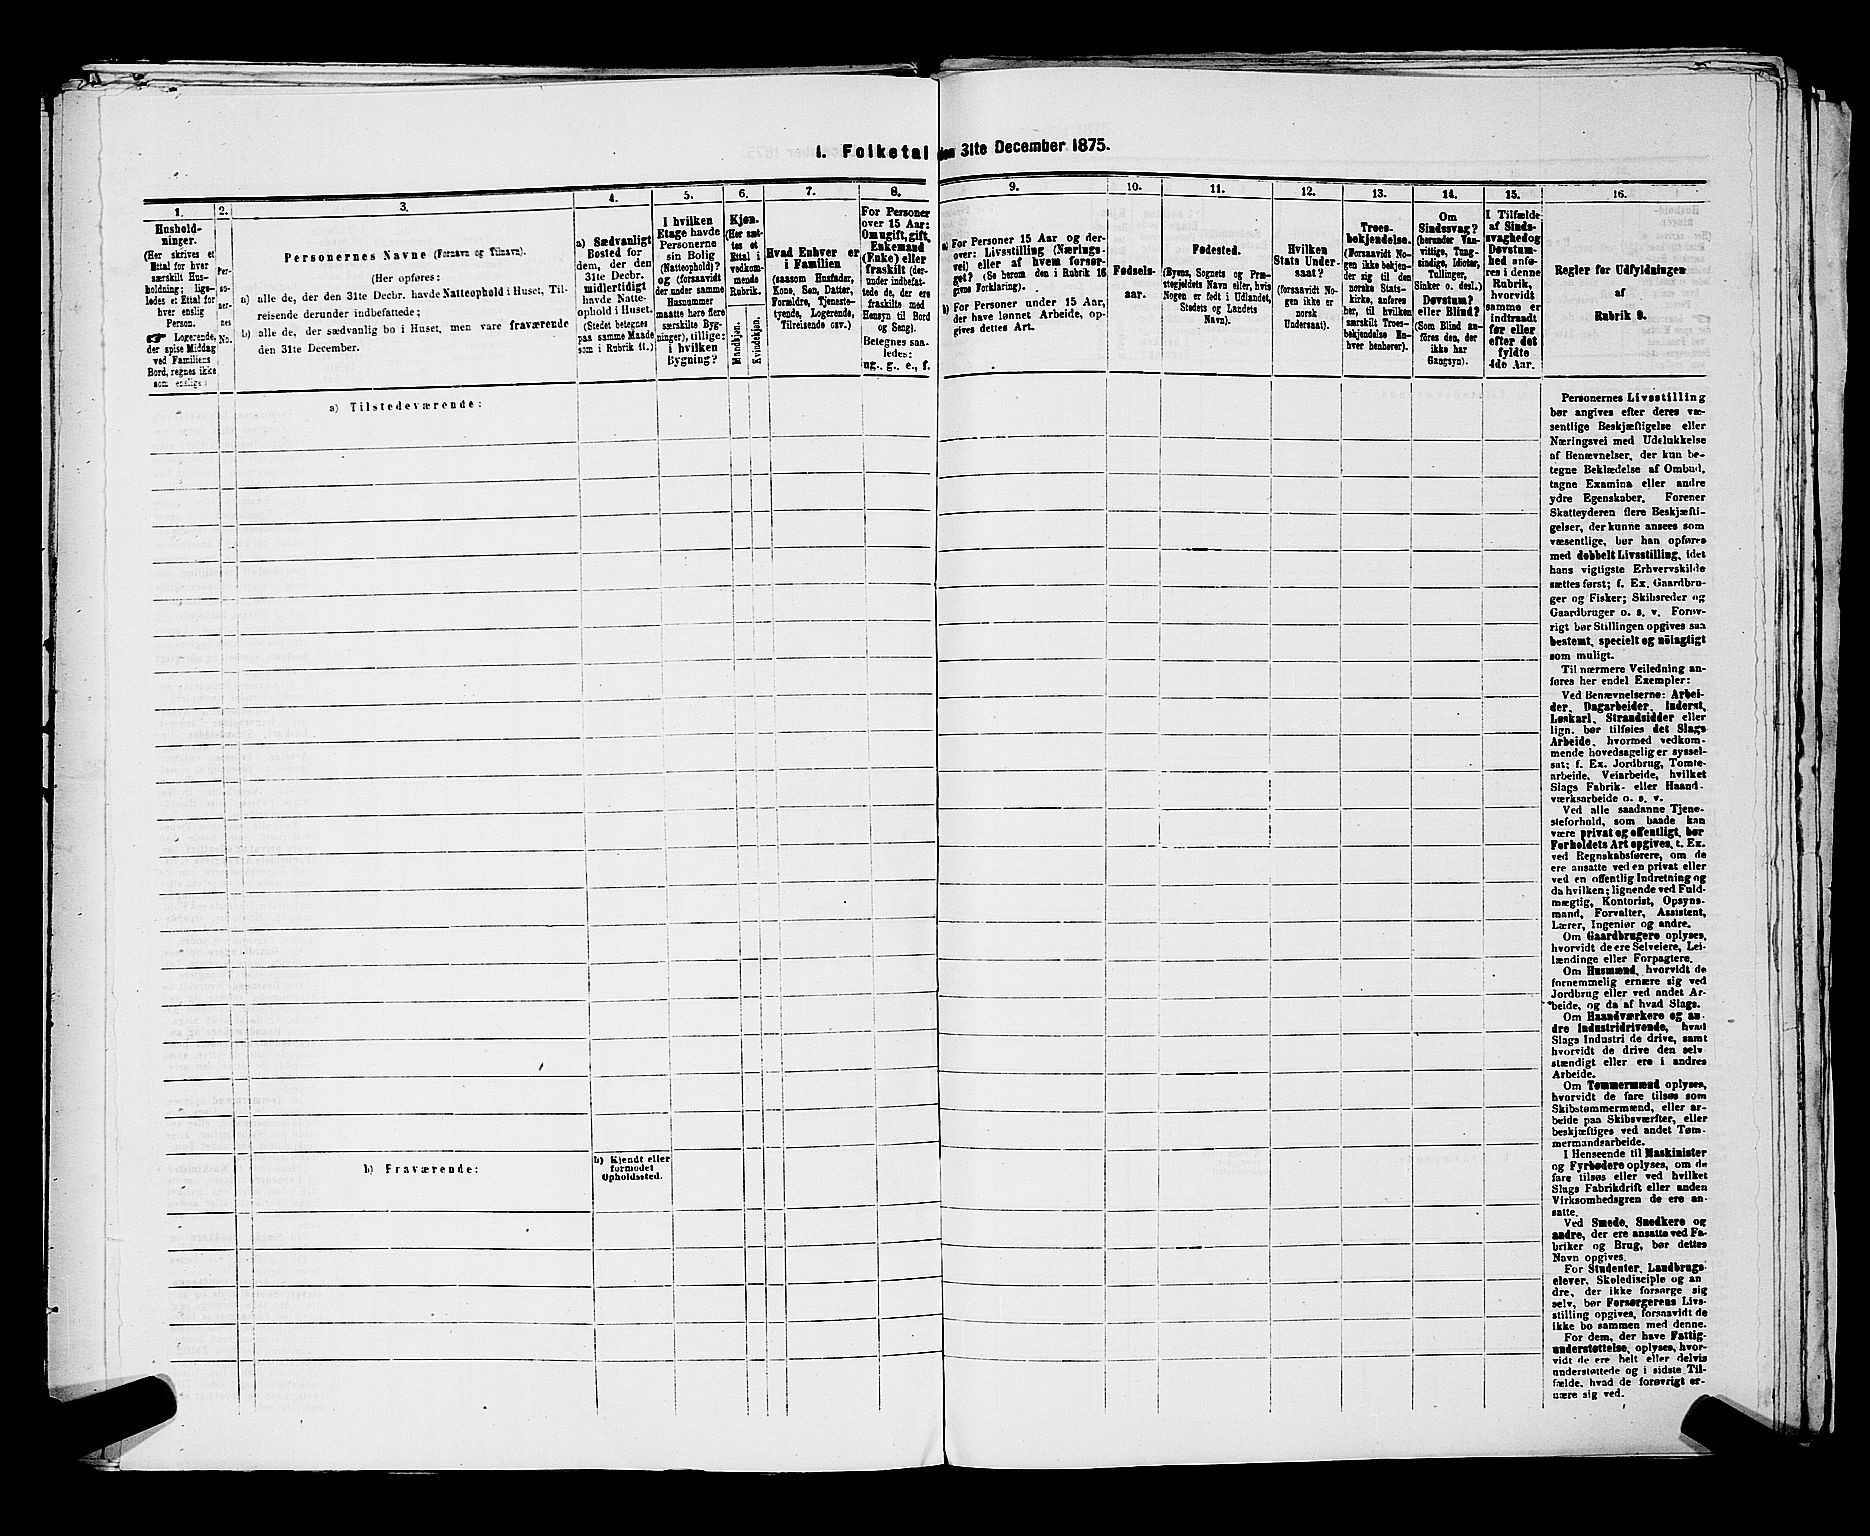 1. Folketal den 31te December 1875.
1.
Hushold-
ninger.
(Her skrives et
Ettal for hver
særskilt Hus-
holdning; lige-
ledes et Ettal for
hver enslig
Person.
Logerende,
der spise Middag
ved Familiens
Bord, regnes ikke
som enslige)
2.
Per-
so-
ner-
nes
No.
3.
Personernes Navne (Fornavn og Tilnavn).
(Her opføres:
a) alle de, der den 31te Decbr. havde Natteophold i Huset, Til-
reisende derunder indbefattede;
b) alle de, der sædvanlig bo i Huset, men vare fraværende
den 31te December.
4.
a) Sædvanligt
Bosted for
dem, der den
31te Decbr.
midlertidigt
havde Natte-
ophold i Huset.
(Stedet betegnes
paa samme Maade
som i Rubrik 11.)
5.
I hvilken
Etage havde
Personerne
sin Bolig
(Natteophold)?
og (forsaavidt
der under samme
Husnummer
maatte høre flere
særskilte Byg-
ninger), tillige:
i hvilken
Bygning?
6.
Kjøn.
(Her sæt-
tes et
Ettal i
vedkom-
mende
Rubrik.
Mandkjøn.
Kvindekjøn.
7.
Hvad Enhver er
i Familien
(saasom Husfader,
Kone, Søn, Datter,
Forældre, Tjeneste-
tyende, Logerende,
Tilreisende osv.)
8.
For Personer
over 15 Aar:
Om ugift, gift,
Enkemand
(Enke) eller
fraskilt (der-
under indbefat-
tede de, der ere
fraskilte med
Hensyn til Bord
og Seng).
Betegnes saa-
ledes:
ug., g., e., f.
9.
a) For Personer 15 Aar og der-
over: Livsstilling (Nærings-
vei) eller af hvem forsør-
get? (Se herom den i Rubrik 16
givne Forklaring).
b) For Personer under 15 Aar,
der have lønnet Arbeide, op-
gives dettes Art.
10.
Fødsels-
aar.
11.
Fødested.
(Byens, Sognets og Præ-
stegjeldets Navn eller, hvis
Nogen er født i Udlandet,
Stedets og Landets
Navn).
12.
Hvilken
Stats Under-
saat?
(forsaavidt No-
gen ikke er
norsk
Undersaat).
13.
Troes-
bekjendelse.
(Forsaavidt No-
gen ikke bekjen-
der sig til den
norske Stats-
kirke, anføres
her, til hvilken
særskilt Troes-
bekjendelse En-
hver henhører).
14.
Om
Sindssvag?
(herunder Van-
vittige, Tung-
sindige, Idioter,
Tullinger,
Sinker o. desl.).
Døvstum?
eller Blind?
(Som Blind an-
føres den, der
ikke har
Gangsyn).
15.
I Tilfælde
af Sinds-
svaghed og
Døvstum-
hed anfø-
res i denne
Rubrik,
hvorvidt
samme er
indtraadt
før eller
efter det
fyldte
4de Aar.
16.
Regler for Udfyldningen
af
Rubrik 9.
a) Tilstedeværende:
b) Fraværende:
b) Kjendt eller
formodet
Opholdssted.
Personernes Livsstilling
bør angives efter deres væ-
sentlige Beskjæftigelse eller
Næringsvei med Udelukkelse
af Benævnelser, der kun be-
tegne Beklædelse af Ombud,
tagne Examina eller andre
ydre Egenskaber. Forener
Skatteyderen flere Beskjæfti-
gelser, der kunne ansees som
væsentlige, bør han opføres
med dobbelt Livsstilling, idet
hans vigtigste Erhvervskilde
sættes først; f. Ex. Gaardbru-
ger og Fisker; Skibsreder og
Gaardbruger o. s. v. Forøv-
rigt bør Stillingen opgives saa
bestemt, specielt og nøiagtigt
som muligt.
Til nærmere Veiledning an-
føres her endel Exempler:
Ved Benævnelserne: Arbei-
der, Dagarbeider, Inderst,
Løskarl, Strandsidder eller
lign. bør tilføies det Slags
Arbeide, hvormed vedkom-
mende hovedsagelig er syssel-
sat; f. Ex. Jordbrug, Tomte-
arbeide, Veiarbeide, hvilket
Slags Fabrik- eller Haand-
værksarbeide o. s. v.
Ved alle saadanne Tjene-
steforhold, som baade kan
være privat og offentligt, bør
Forholdets Art opgives, t. Ex.
ved Regnskabsførere, om de
ere ansatte ved en privat eller
ved en offentlig Indretning og
da hvilken; lignende ved Fuld-
mægtig, Kontorist, Opsyns-
mand, Forvalter, Assistent,
Lærer, Ingeniør og andre.
Om Gaardbrugere oplyses,
hvorvidt de ere Selveiere, Lei-
lændinge eller Forpagtere.
Om Husmænd, hvorvidt de
fornemmelig ernære sig ved
Jordbrug eller ved andet Ar-
beide, og da af hvad Slags.
Om Haandværkere og an-
dre Industridrivende, hvad
Slags Industri de drive, samt
hvorvidt de drive den selv-
stændigt eller ere i andres
Arbeide.
Om Tømmermænd oplyses,
hvorvidt de fare tilsøs som
Skibstømmermænd, eller ar-
beide paa Skibsværfter, eller
beskjæftiges ved andet Tøm-
mermandsarbeide.
I Henseende til Maskinister
og Fyrbødere oplyses, om de
fare tilsøs eller ved hvilket
Slags Fabrikdrift eller anden
Virksomhedsgren de ere an-
satte.
Ved Smede, Snedkere og
andre, der ere ansatte ved Fa-
briker og Brug, bør dettes
Navn opgives.
For Studenter, Landbrugs-
elever, Skoledisciple og an-
dre, der ikke forsørge sig
selv, bør Forsørgerens Livs-
stilling opgives, forsaavidt de
ikke bo sammen med denne.
For dem, der have Fattig-
understøttelse, oplyses, hvor-
vidt de ere helt eller delvis
understøttede og i sidste Til-
fælde, hvad de forøvrigt er-
nære sig ved.